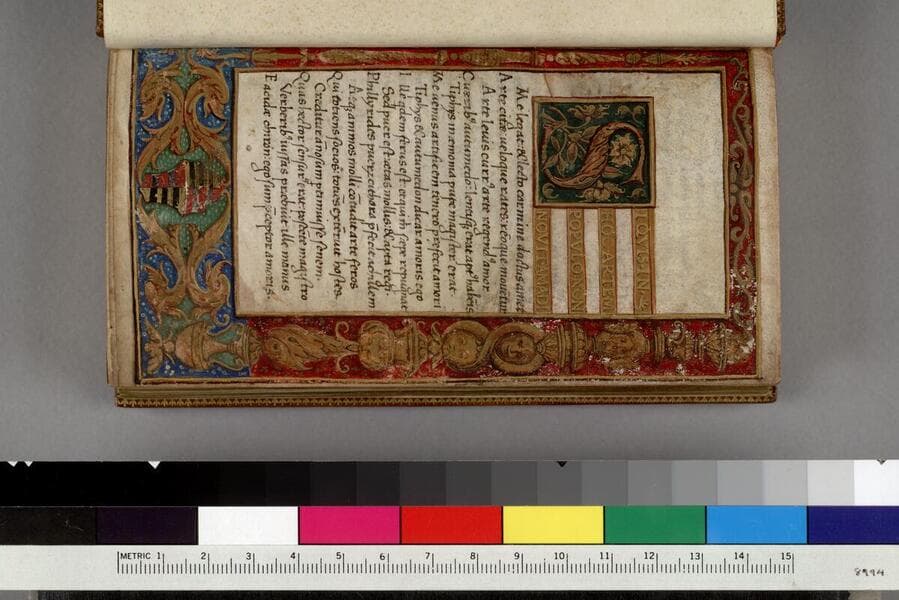 S
IQVIS IN
ARTEM
POPVLO NON
NOVIT AMAD
Me legat & lecto carmine doctus amet
Arte cite ueloque rates: remoque mouetur
Arte leuis currꝰ arte regendꝰ amor
Curribꝰ automedō lentisq; erat aptꝰ habēis
Tiphys in æmonia pupe magister erat
Me uenus artificem tenero prefecit amori
Tiphys & automedon dicar amoris ego
Ille qdem ferus est & qui m sepe repugnat
Sed puer est ætas mollis & apta regi.
Phillyrides puerū cithara pfecit achillem
Atq; animos molli cōtudit arte feros
Qui totiens socios: totiēs exterruit hostes
Creditur ānosum pertimuisse senem
Quas hector sensurꝰ erat: poscēte magistro
Verberibꝰ iussas præbuit ille manus
Eacidæ chiron: ego sum p̄ceptor amoris.
METRIC 1 2 3 4 5 6 7 8 9 10 11 12 13 14 15
8994